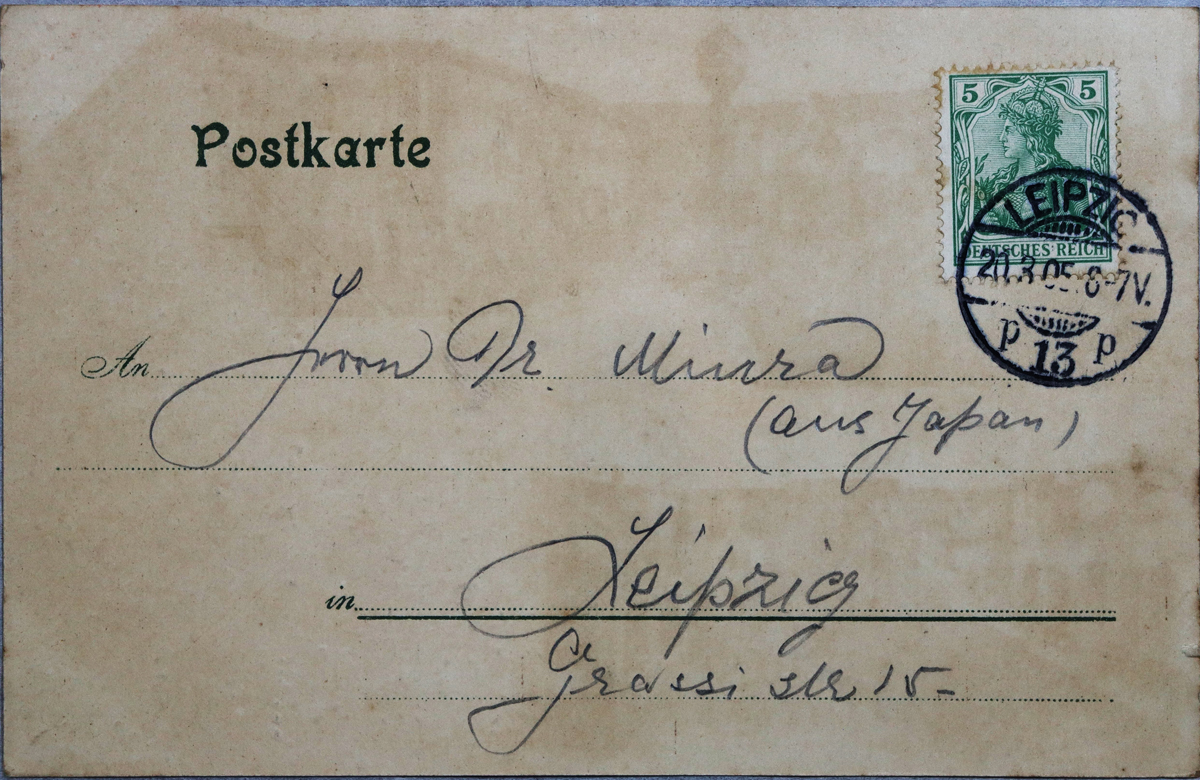 Postkarte
5 5
DEUTSCHES REICH
LEIPZIG
20.3.05. 6-7V.
p 13 p
An Herrn Dr Miura
(aus Japan)
in Leipzig
Grassi str 15-